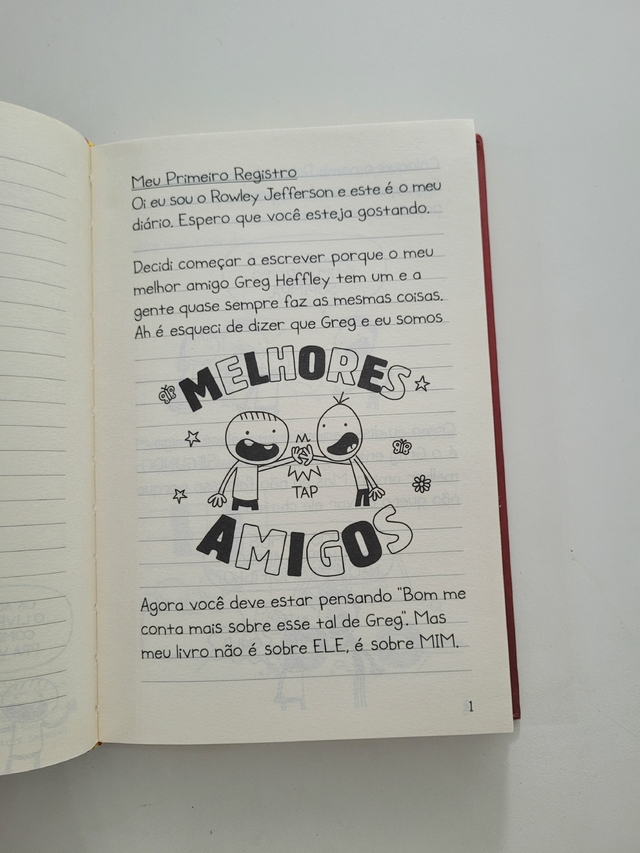 Meu Primeiro Registro
Oi eu sou o Rowley Jefferson e este é o meu
diário. Espero que você esteja gostando.
Decidi começar a escrever porque o meu
melhor amigo Greg Heffley tem um e a
gente quase sempre faz as mesmas coisas.
Ah é esqueci de dizer que Greg e eu somos
MELHORES
TAP
AMIGOS
Agora você deve estar pensando "Bom me
conta mais sobre esse tal de Greg". Mas
meu livro não é sobre ELE, é sobre MIM.
1